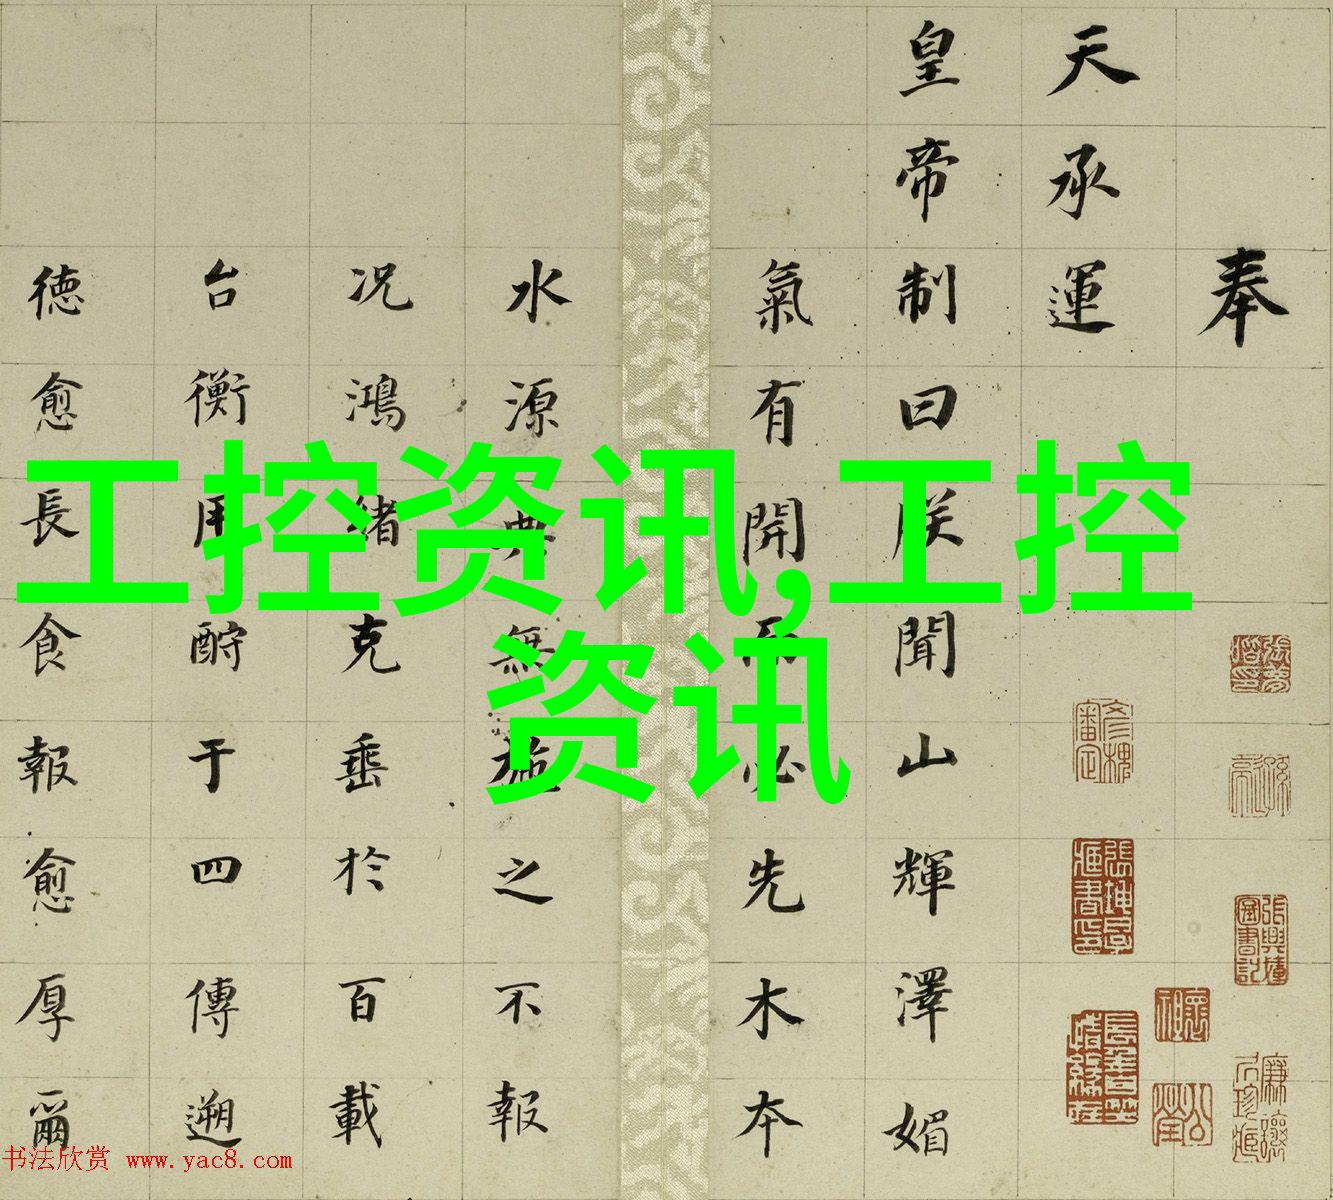 奉
天承運
皇帝制曰朕聞山輝澤媚
氣有開而必先木本
水源典無施之不報
况鴻緒克垂於百載
台衡用酧于四傳遡
德愈長食報愈厚爾
工控资讯,工控
资讯
书法欣赏 www.yac8.com